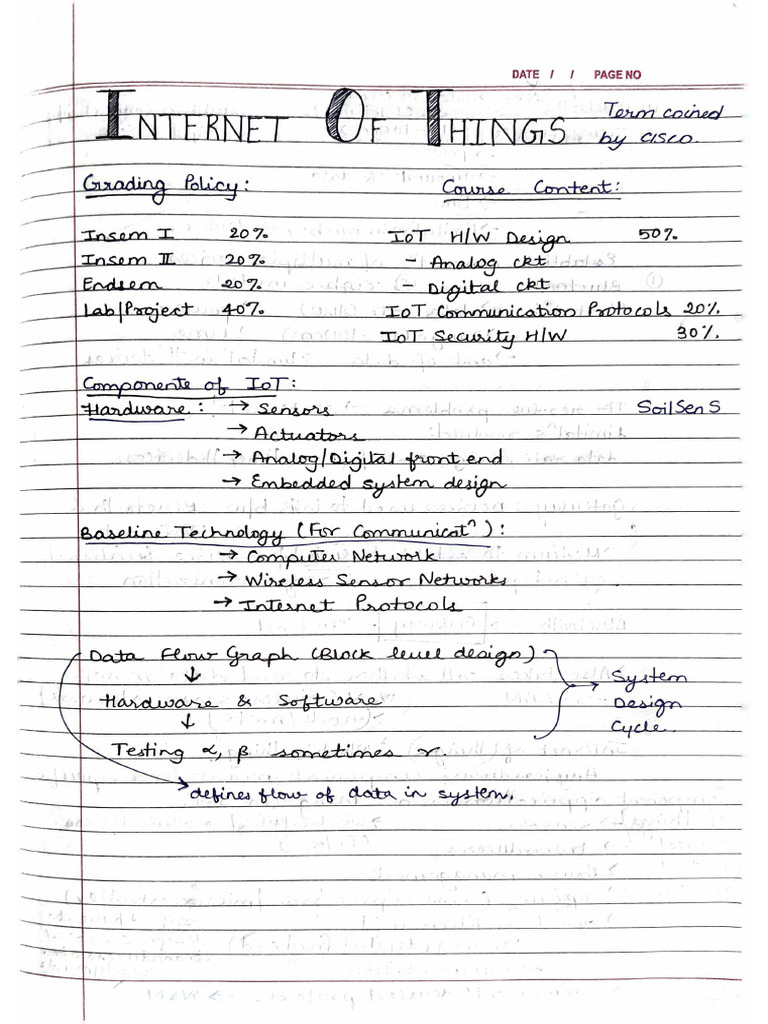 DATE / / PAGE NO
INTERNET OF THINGS Term coined
by CISCO.
Grading Policy: Course Content:
Insem I 20% IoT H/W Design 50%
Insem II 20% - Analog ckt
Endsem 20% - Digital ckt
Lab/Project 40% IoT Communication Protocols 20%
IoT Security H/W 30%
Components of IoT:
Hardware: → Sensors SoilSenS
→ Actuators
→ Analog/Digital front end
→ Embedded system design
Baseline Technology (For Communicatⁿ):
→ Computer Network
→ Wireless Sensor Networks
→ Internet Protocols
Data Flow Graph (Block level design)
↓
Hardware & Software
↓
Testing α, β sometimes r.
→ System
Design
Cycle.
→ defines flow of data in system.